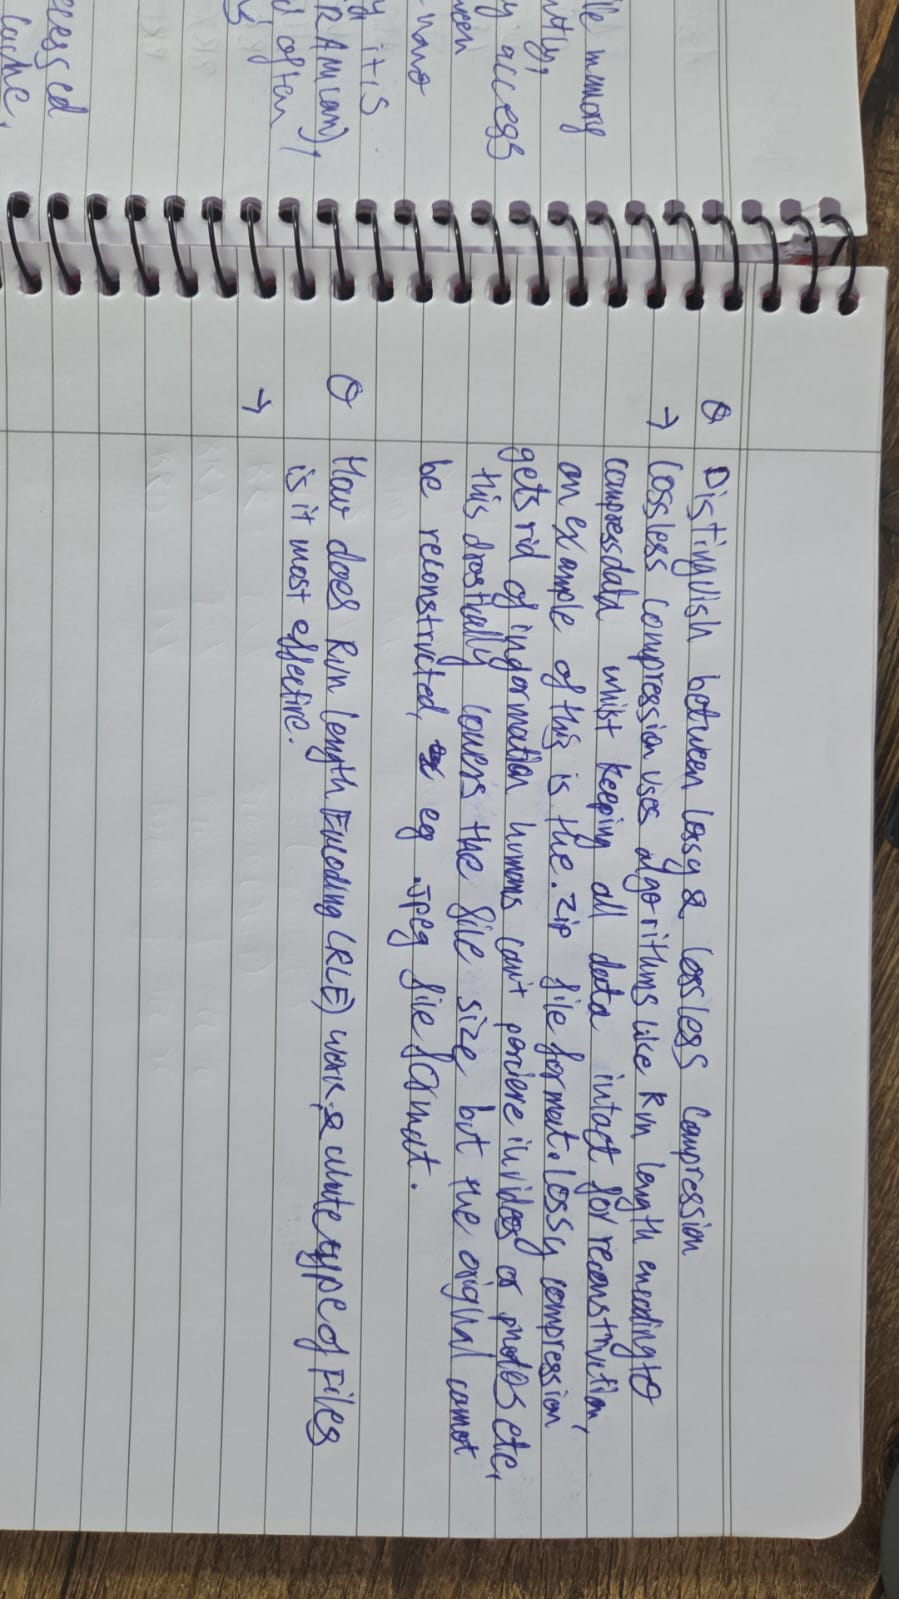 le memory
ntly,
y access
ween
nano
y it is
RAM(am),
d often
cessed
cache.
Q Distinguish between lossy & lossless compression
→ lossless compression uses algorithms like Run length encoding to
compress data whilst keeping all data intact for reconstruction,
an example of this is the .zip file format. lossy compression
gets rid of ingormation humans can't perciere in videos or photos etc,
this drastically lowers the file size but the original cannot
be reconstructed, eg .Jpeg file format.
Q How does Run length Encoding (RLE) work & what type of Files
is it most effective.
→